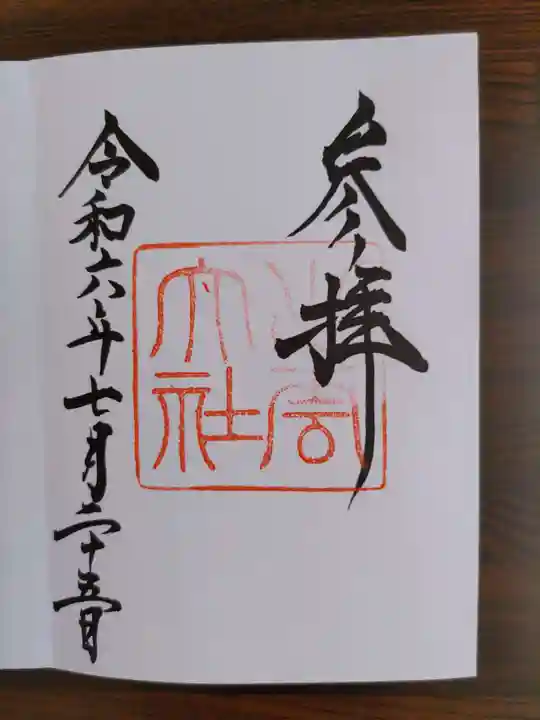 参拝
大社
令和六年七月二十五日